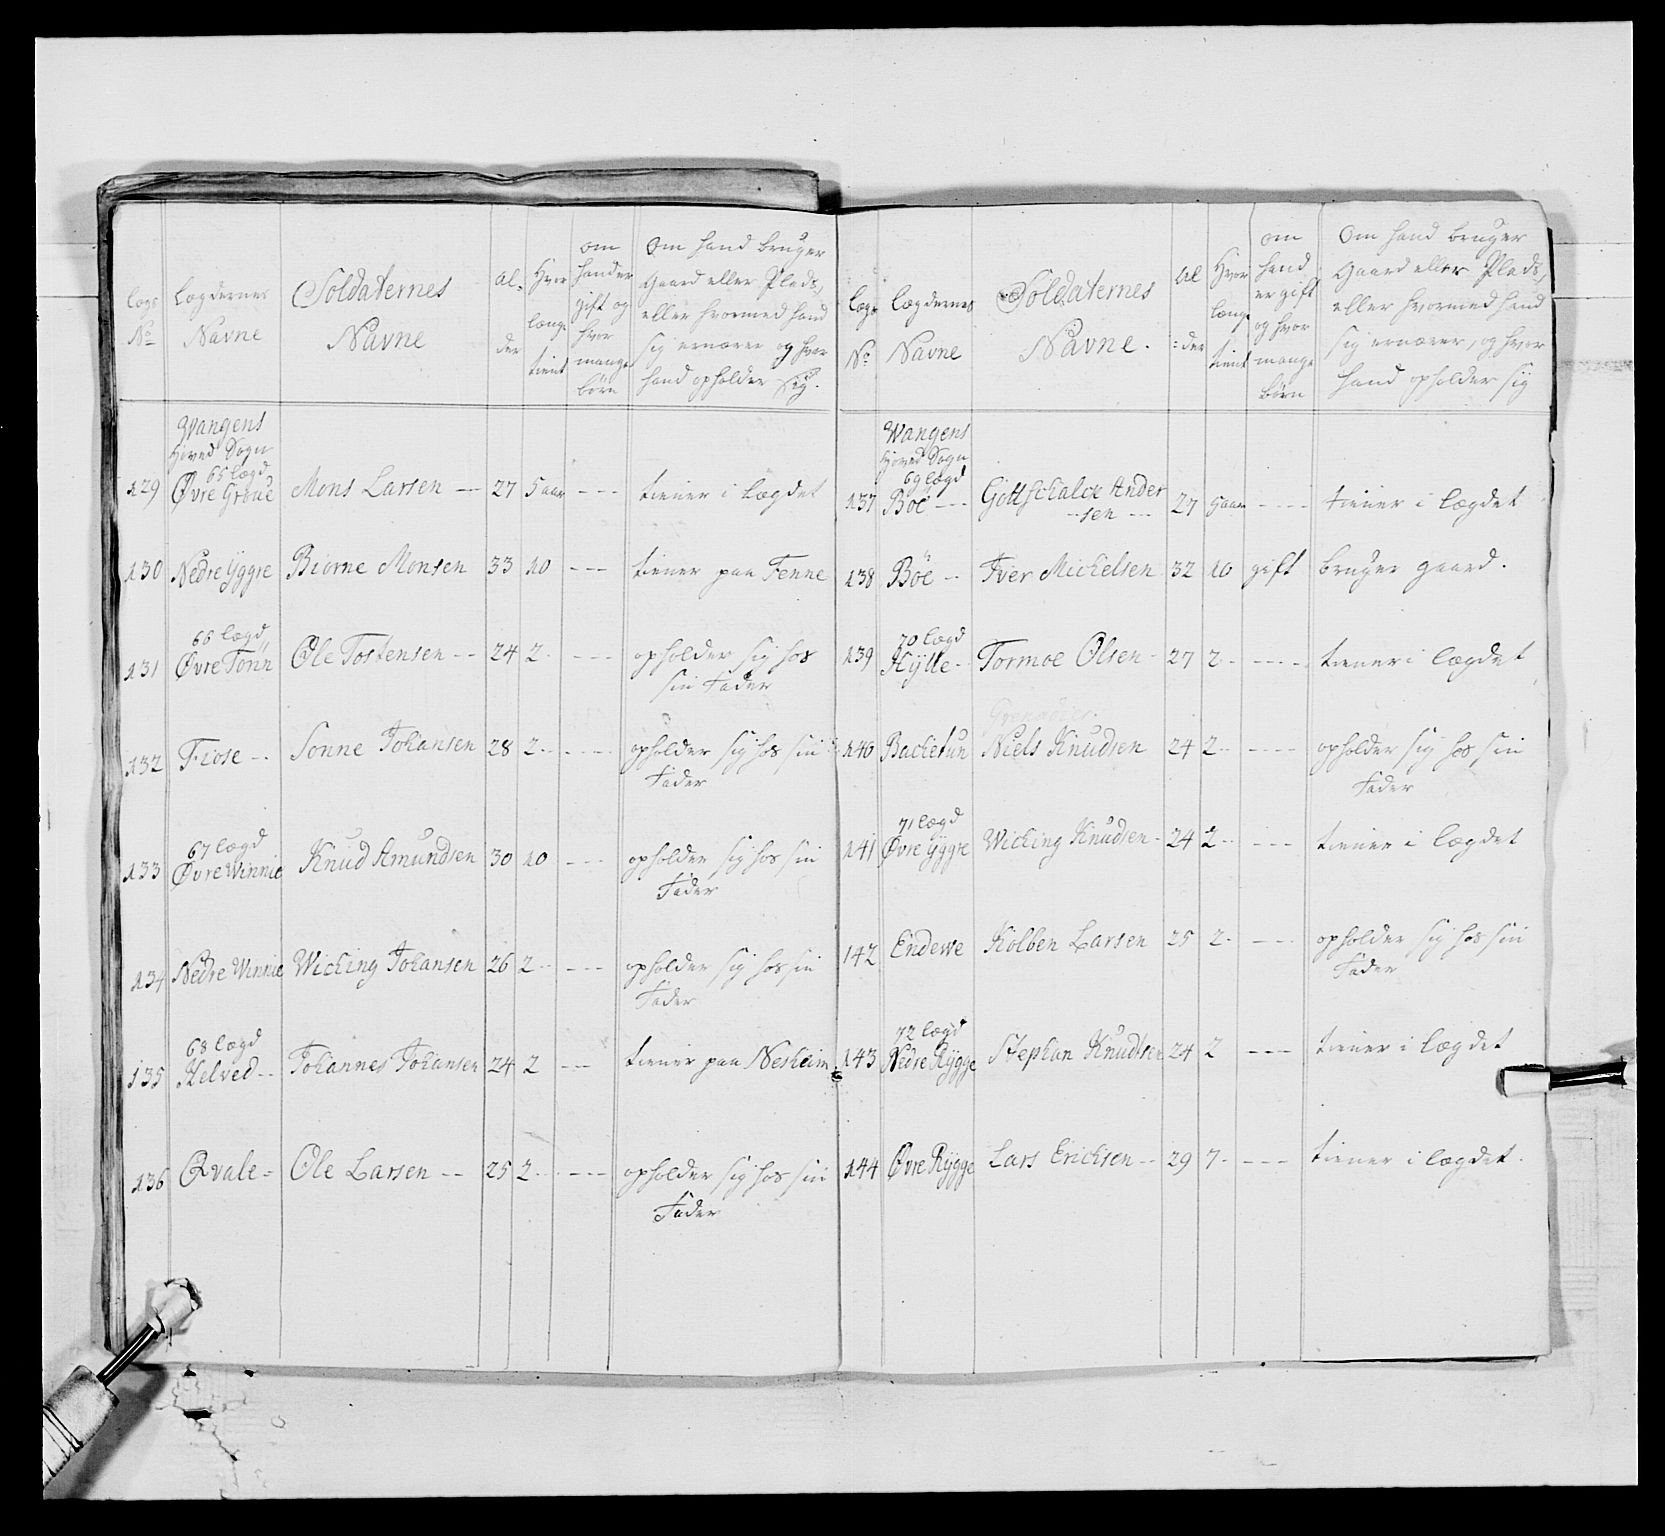 Lægs No
Lægdernes Navne
Soldaternes Navne
Al-der
Hvor længe tient
om hand er gift og hvor mange börn
Om hand bruger Gaard eller Plads, eller hvormed hand sig ernærer og hvor hand opholder sig.
Wangens
Hoved Sogn
65 lægd
129 Øvre Groue Mons Larsen -- 27 5 aar --- tiener i lægdet
130 Nedre Yggre Biorne Monsen 33 10 --- tiener paa Fenne
66 lægd
131 Øvre Tönn Ole Tostensen -- 24 2. --- opholder sig hos
sin Fader
132 Fiose -- Sonne Johansen 28 2 --- opholder sig hos sin
Fader
67 lægd
133 Øvre Winnie Knud Amundsen 30 10 --- opholder sig hos sin
Fader
134 Nedre Winnie Wiching Johansen 26 2 --- opholder sig hos sin
Fader
68 lægd
135 Helved -- Johannes Johansen 24 2 --- tiener paa Nesheim
136 Qvale = Ole Larsen -- 25 2 --- opholder sig hos sin
Fader
Lægs No
Lægdernes Navne
Soldaternes Navne.
Al=der
Hvor længe tient
om hand er gift og hvor mange Börn
Om hand bruger Gaard eller Plads, eller hvormed hand sig ernærer, og hvor hand opholder sig
Wangens
Hoved Sogn
69 lægd
137 Böe --- Gottschalck Ander
-- sen --- 27 5 aar ---- tiener i lægdet
138 Böe -- Iver Michelsen 32 10 gift bruger gaard.
70 lægd
139 Hÿlle -- Tormoe Olsen - 27 2 -- ---- tiener i lægdet
Grenadier.
140 Backetun Niels Knudsen 24 2 -- ---- opholder sig hos sin
Fader
71 lægd
141 Øvre Yggre Wiching Knudsen - 24 2 -- --- tiener i lægdet
142 Endewe Kolben Larsen 25 2. --- opholder sig hos sin
Fader
72 lægd
143 Nedre Rÿgge Stephan Knudsen 24 2 --- tiener i lægdet
144 Øvre Rÿgge Lars Ericksen -- 29 7. --- tiener i lægdet.